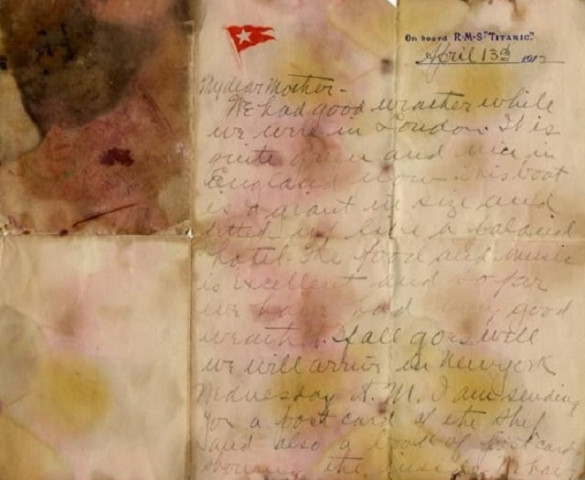 On board R·M·S "TITANIC."
April 13th 1912
My dear Mother -
We had good weather while
we were in London. It is
quite green and nice in
England now. This boat
is a giant in size and
fitted up like a
hotel. The food and music
is excellent and so far
we have had very good
weather. If all goes well
we will arrive in New York
Wednesday A.M. I am sending
you a post card of the ship
and also a book of post cards
showing the inside